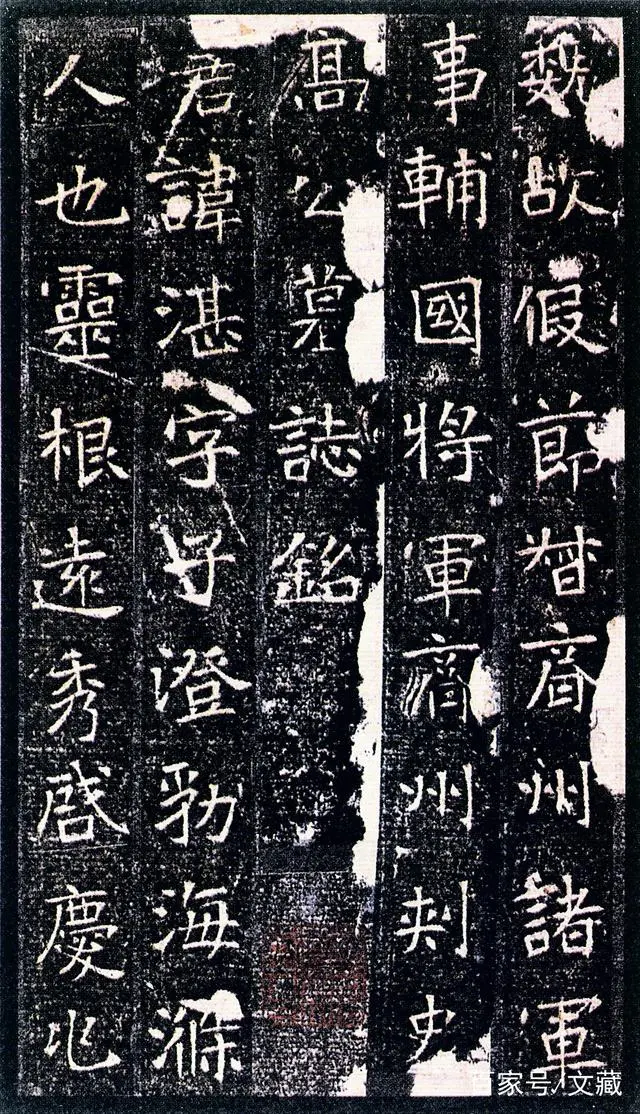 魏故假節督齊州諸軍
事輔國將軍齊州刺史
高公墓誌銘
君諱湛字子澄勃海滌
人也靈根遠秀啓慶兆
百家号/文藏